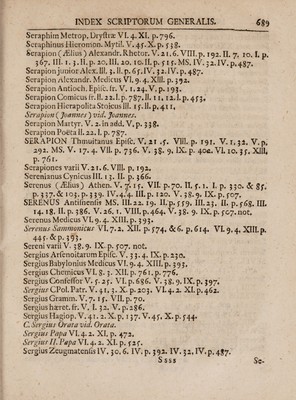 INDEX SCRIPTORUM GENERALIS. 689
Seraphim Metrop. Dryſtræ VI. 4. XI. p. 796.
Seraphinus Hieromon. Mytil. V. 45. X. p. 538.
Serapion (Ælius) Alexandr. Rhetor. V. 21. 6. VIII. p. 192. II. 7. 10. I. p.
367. III. 1. 3. II. p. 20. III. 20. 10. II. p. 515. MS. IV. 32. IV. p. 487.
Serapion junior Alex. III. 3. II. p. 65. IV. 32. IV. p. 487.
Serapion Alexandr. Medicus VI. 9. 4. XIII. p. 392.
Serapion Antioch. Epiſc. fr. V. 1. 24. V. p. 193.
Serapion Comicus fr. II. 22. I. p. 787. II. 11. 12. I. p. 453.
Serapion Hierapolita Stoicus III. 15. II. p. 411.
Serapion (Joannes) vid. Joannes.
Serapion Martyr. V. 2. in add. V. p. 338.
Serapion Poëta II. 22. I. p. 787.
SERAPION Thmuitanus Epiſc. V. 21. 5. VIII. p. 191. V. 1. 32. V. p.
292. MS. V. 17. 4. VII. p. 736. V. 38. 9. IX. p. 400. VI. 10. 35. XIII.
p. 761.
Serapiones varii V. 21. 6. VIII. p. 192.
Serenianus Cynicus III. 13. II. p. 366.
Serenus (Ælius) Athen. V. 7. 15. VII. p. 70. II. 5. 1. I. p. 330. & 85.
p. 337. & 103. p. 339. IV. 4. 4. III. p. 120. V. 38. 9. IX. p. 507.
SERENUS Antiſſenſis MS. III. 22. 19. II. p. 559. III. 23. II. p. 568. III.
14. 18. II. p. 386. V. 26. 1. VIII. p. 464. V. 38. 9. IX. p. 507. not.
Serenus Medicus VI. 9. 4. XIII. p. 393.
Serenus Sammonicus VI. 7. 2. XII. p. 574. & 6. p. 614. VI. 9. 4. XIII. p.
445. & p. 393.
Sereni varii V. 38. 9. IX. p. 507. not.
Sergius Arſenoitarum Epiſc. V. 33. 4. IX. p. 230.
Sergius Babylonius Medicus VI. 9. 4. XIII. p. 393.
Sergius Chemicus VI. 8. 3. XII. p. 761. p. 776.
Sergius Confeſſor V. 5. 25. VI. p. 686. V. 38. 9. IX. p. 397.
Sergius C Pol. Patr. V. 41. 3. X. p. 203. VI. 4. 2. XI. p. 462.
Sergius Gramm. V. 7. 15. VII. p. 70.
Sergius hæret. fr. V. I. 32. V. p. 286.
Sergius Hagiop. V. 41. 2. X. p. 137. V. 45. X. p. 544.
C. Sergius Orata vid. Orata.
Sergius Papa VI. 4. 2. XI. p. 472.
Sergius II. Papa VI. 4. 2. XI. p. 525.
Sergius Zeugmatenſis IV. 30. 6. IV. p. 392. IV. 32. IV. p. 487.
Ssss Se-